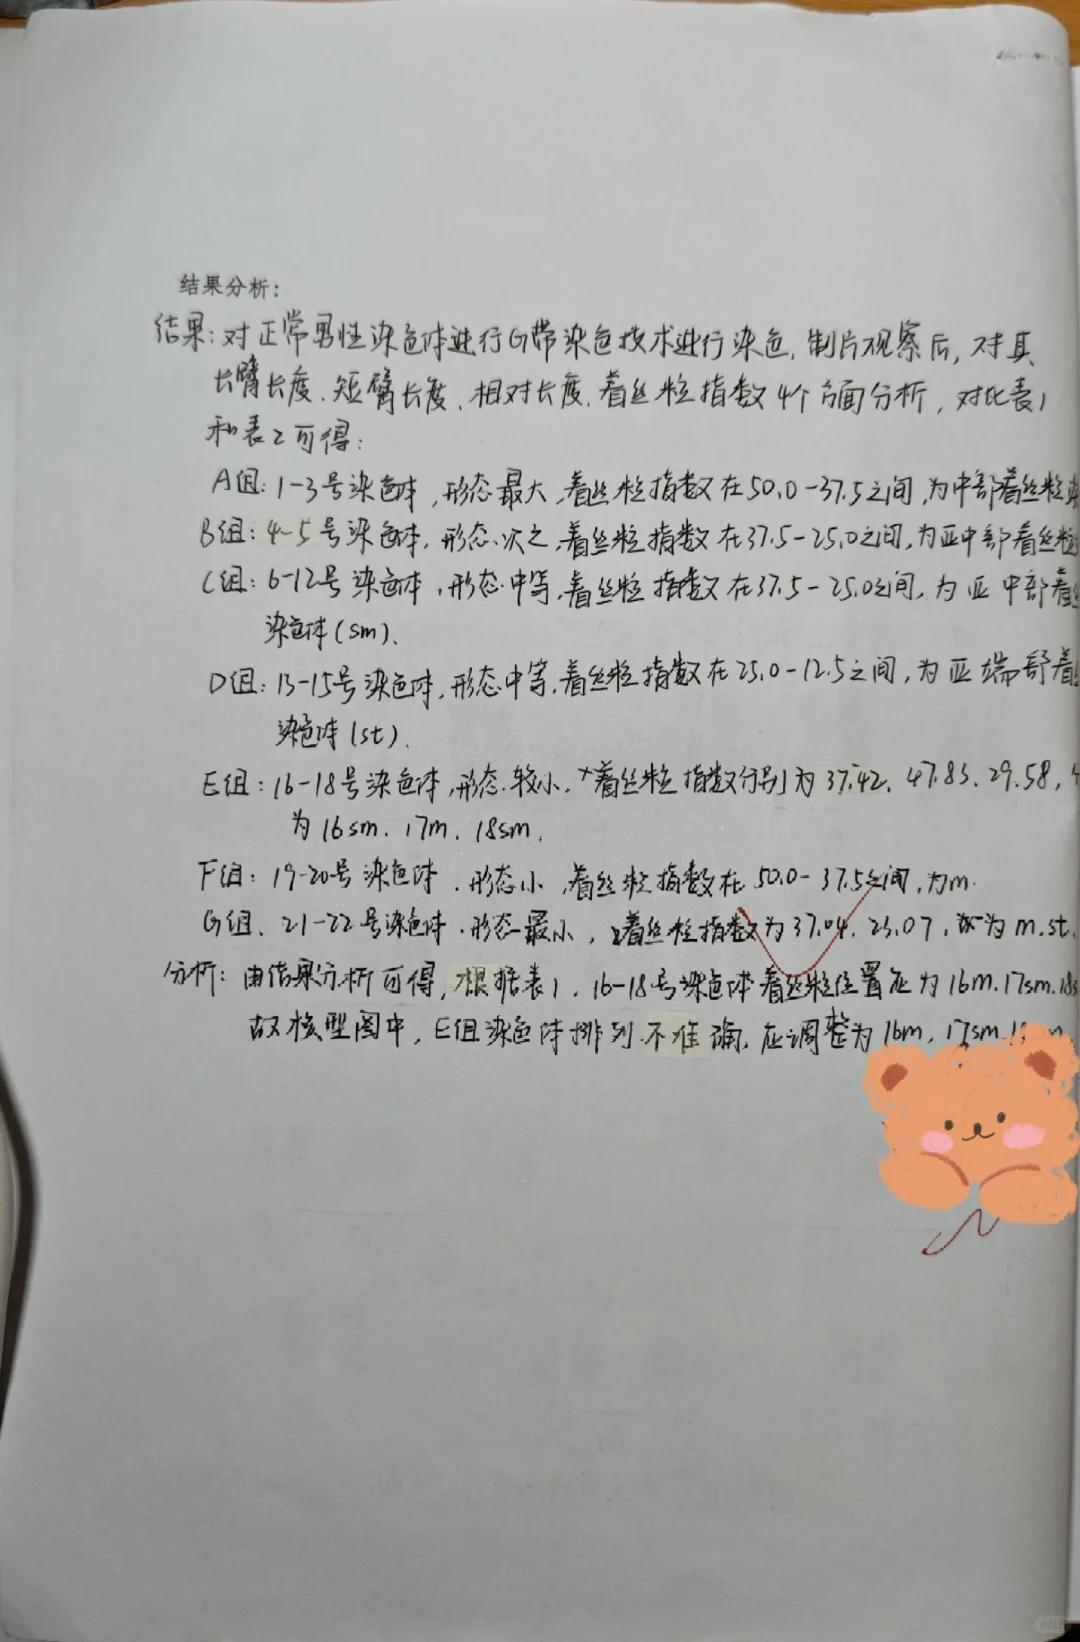 结果分析：
结果：对正常男性染色体进行G带染色技术进行染色，制片观察后，对其
长臂长度、短臂长度、相对长度、着丝粒指数4个方面分析，对比表1
和表2可得：
A组：1-3号染色体，形态最大，着丝粒指数在50.0-37.5之间，为中部着丝粒
B组：4-5号染色体，形态次之，着丝粒指数在37.5-25.0之间，为亚中部着丝粒
C组：6-12号染色体，形态中等，着丝粒指数在37.5-25.0之间，为亚中部着
染色体(sm)、
D组：13-15号染色体，形态中等，着丝粒指数在25.0-12.5之间，为亚端部着
染色体(st)、
E组：16-18号染色体，形态较小，着丝粒指数分别为37.42、47.83、29.58，
为16sm、17m、18sm.
F组：19-20号染色体，形态小，着丝粒指数在50.0-37.5之间，为m.
G组、21-22号染色体，形态最小，着丝粒指数为37.04、23.07，为m.st.
分析：由结果分析可得，根据表1，16-18号染色体着丝粒位置应为16m.17sm.18s
故核型图中，E组染色体排列不准确，应调整为16m，17sm